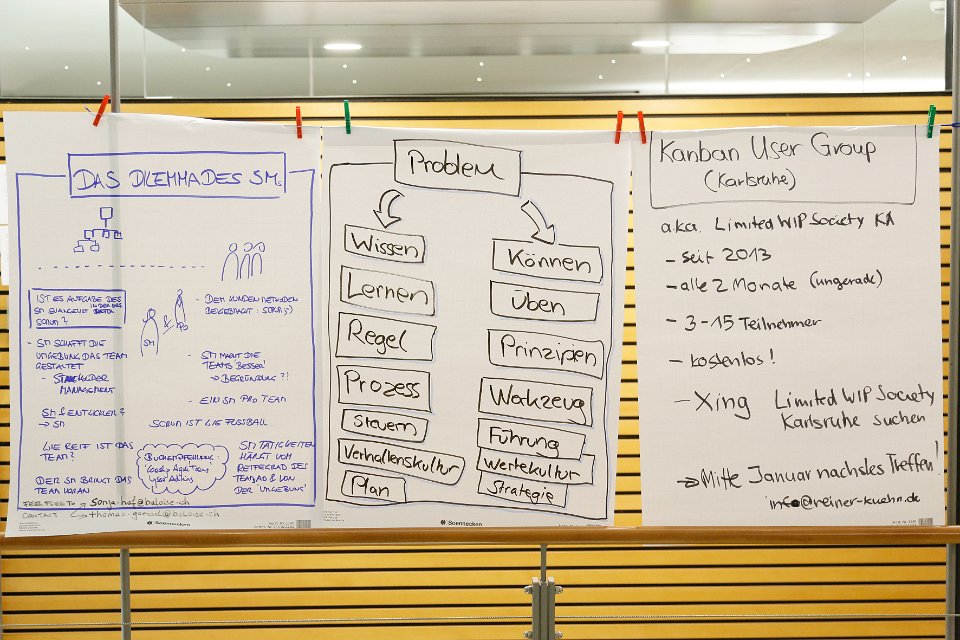 DAS DILEMMA DES SMs
IST ES AUFGABE DES
SM
IN DER
SCRUM?
- SM SCHAFFT DIE
UMGEBUNG DAS TEAM
GESTALTET
- STAKEHOLDER
MANAGEMENT
SM & ENTWICKLER?
→ SM
WIE REIF IST DAS
TEAM?
DER SM BRINGT DAS
TEAM VORAN
SM
&
PO
- DEM KUNDEN METHODEN
BEIGEBRACHT: SCRUM ;)
- SM MACHT DIE
TEAMS BESSER!
→ BEGRÜNDUNG?!
- EIN SM PRO TEAM
SCRUM IST WIE FUSSBALL...
BUCHEMPFEHLUNG
SM TÄTIGKEITEN
HÄNGT VOM
REIFEGRAD DES
TEAMS AB & VON
DER 'UMGEBUNG'
FEEL FREE TO
CONTACT
sonja.hof@baloise.ch
Soennecken
Problem
Wissen
Lernen
Regel
Prozess
Steuern
Verhaltenskultur
Plan
Können
Üben
Prinzipen
Werkzeug
Führung
Wertekultur
Strategie
Soennecken
Kanban User Group
(Karlsruhe)
a.k.a. Limited WIP Society KA
- seit 2013
- alle 2 Monate (ungerade)
- 3-15 Teilnehmer
- kostenlos!
- Xing Limited WIP Society
Karlsruhe suchen
→ Mitte Januar nächstes Treffen!
info@reiner-kuehn.de